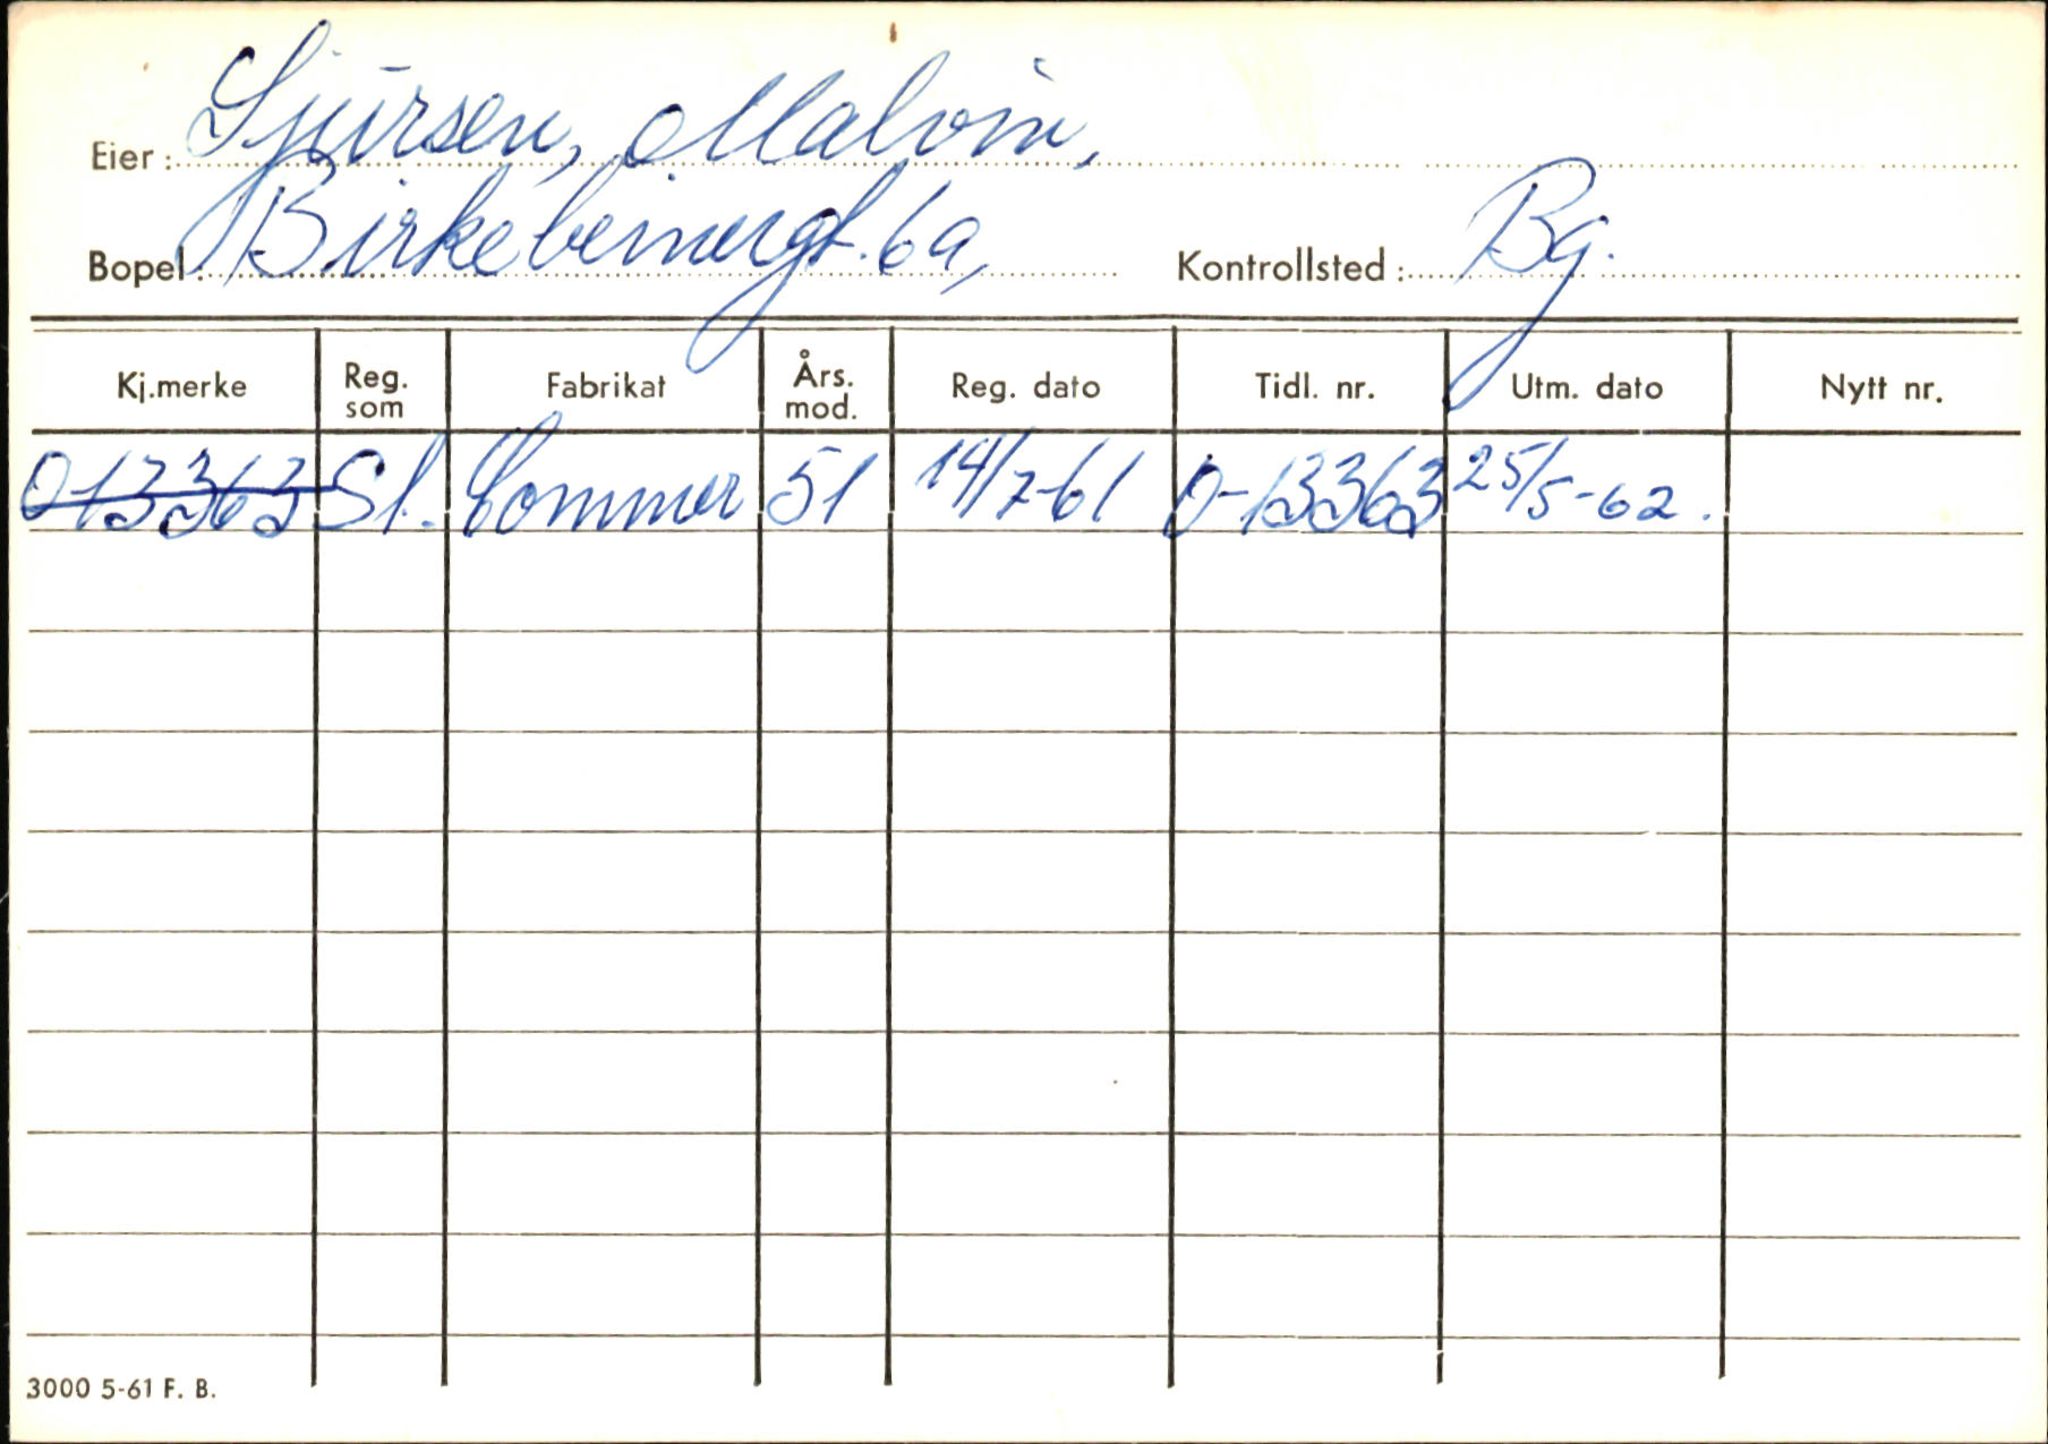 Eier: Sjursen, Malvin,
Bopel: Birkebeinergt. 6a, Kontrollsted: Bg.
Kj.merke Reg. som Fabrikat Års. mod. Reg. dato Tidl. nr. Utm. dato Nytt nr.
O-13363 St. Commer 51 14/7-61 O-13363 25/5-62.
3000 5-61 F. B.